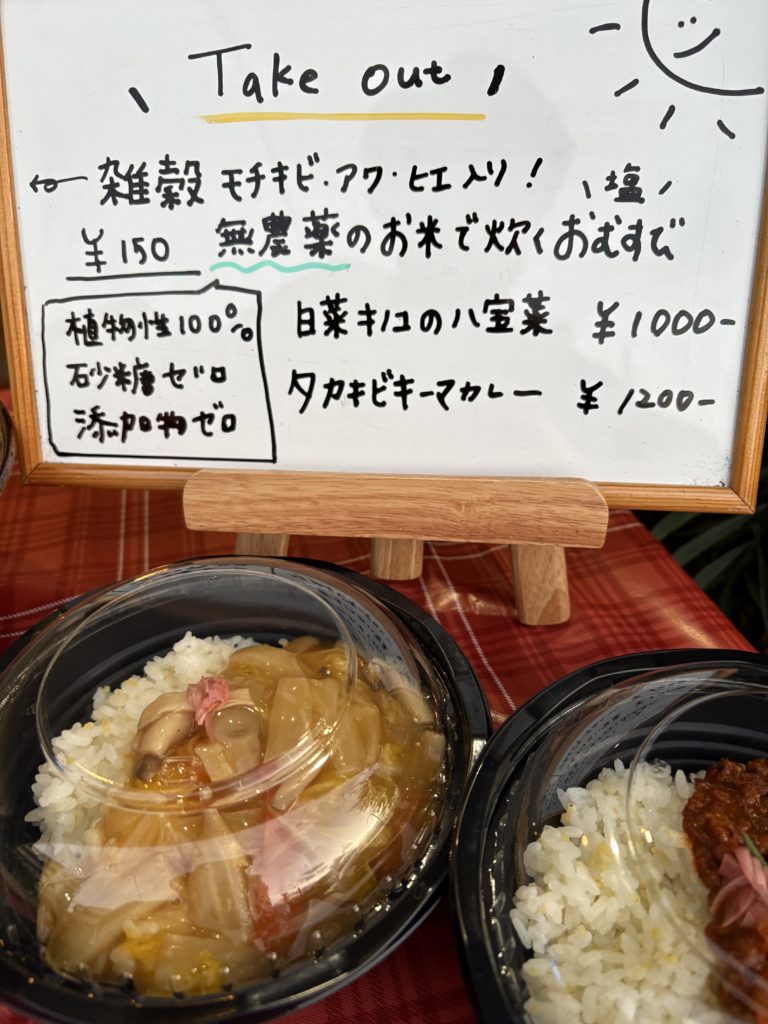 Take out
← 雑穀 モチキビ・アワ・ヒエ入り!
塩
¥150 無農薬のお米で炊くおむすび
植物性100%
砂糖ゼロ
添加物ゼロ
白菜キノコの八宝菜 ¥1000-
タカキビキーマカレー ¥1200-